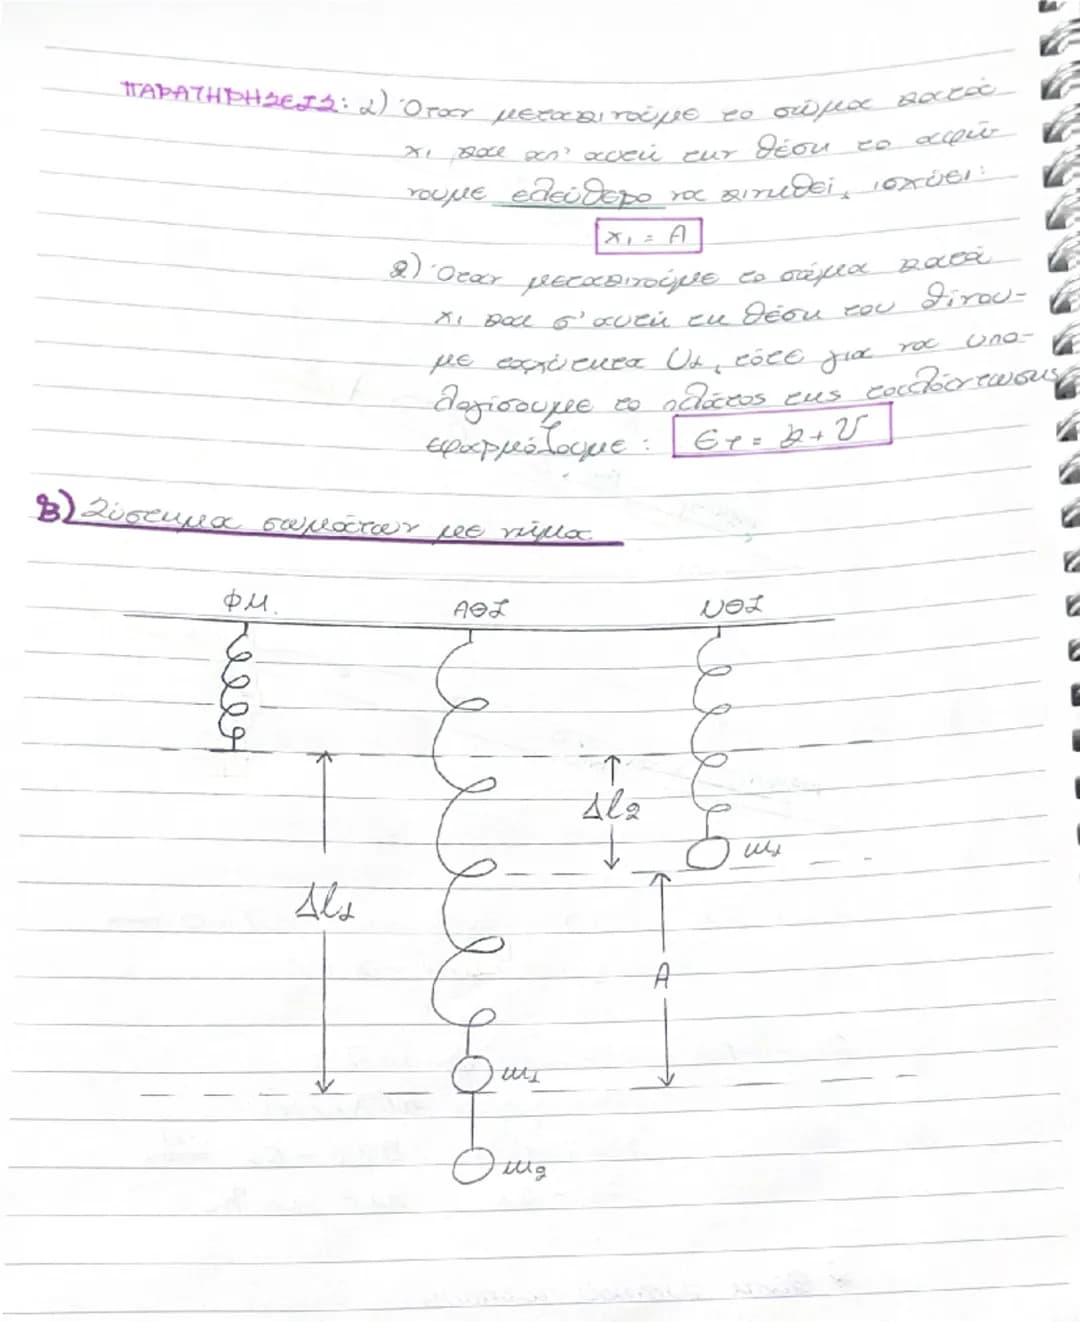 ΠΑΡΑΤΗΡΗΣΕΙΣ: 1) Όταν μετακινούμε το σώμα κατά
x₁ και απ' αυτή την θέση το αφή-
νουμε ελεύθερο να κινηθεί, ισχύει:
x₁ = A
2) Όταν μετακινούμε το σώμα κατά
x₁ και σ' αυτή τη θέση του δίνου-
με ταχύτητα U₁, τότε για να υπο-
λογίσουμε το πλάτος της ταλάντωσης
εφαρμόζουμε: Ετ = k + U
B) Σύστημα σωμάτων με νήμα
ΦΜ. ΑΘΙ ΝΘΙ
Δl₂
m₁
Δl₁
A
m₁
m₂